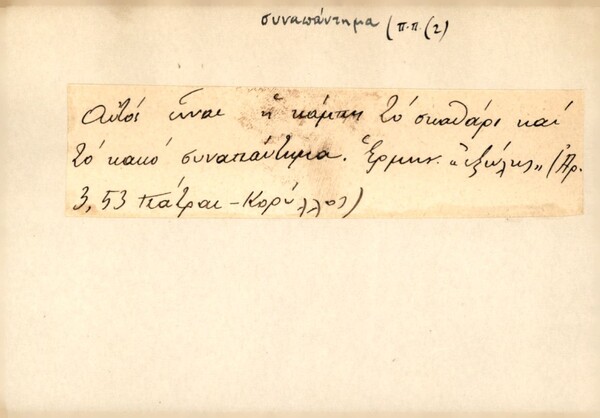 συναπάντημα (π.π. (2)
Αὐτοί εἶναι ἡ κάμπη τό σκαθάρι καί
τό κακό συναπάντημα. Ἑρμην. "ἐξώλης" (Ἀρ.
3,53 Πάτραι - Κορύλλος)